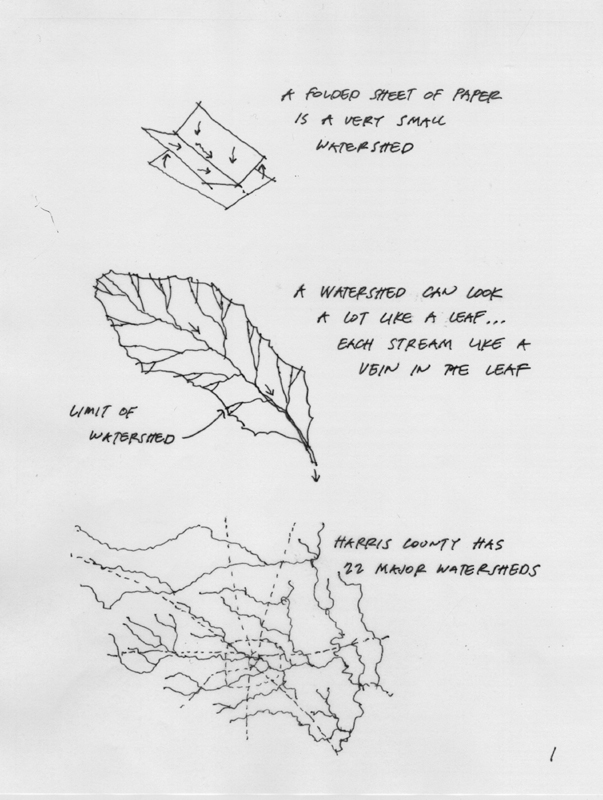 A FOLDED SHEET OF PAPER
IS A VERY SMALL
WATERSHED
A WATERSHED CAN LOOK
A LOT LIKE A LEAF...
EACH STREAM LIKE A
VEIN IN THE LEAF
LIMIT OF
WATERSHED
HARRIS COUNTY HAS
22 MAJOR WATERSHEDS
1